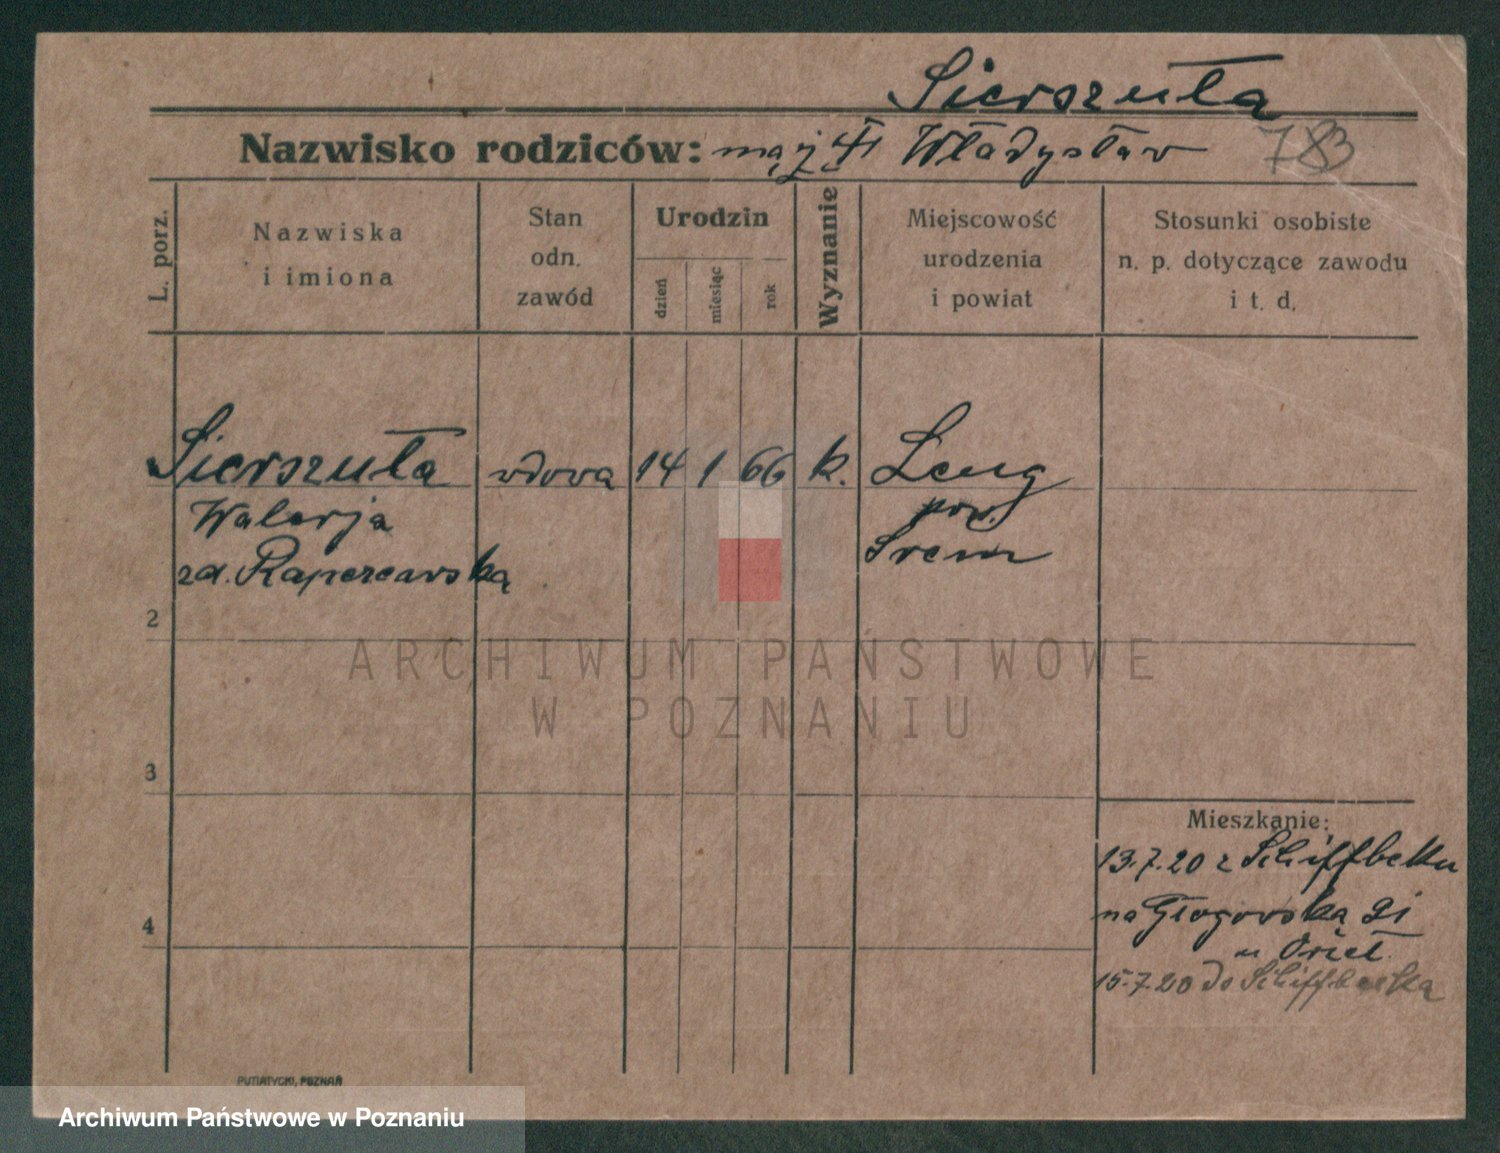 Sierszuła
Nazwisko rodziców: mąż Władysław 783
L. porz.
Nazwiska
i imiona
Stan
odn.
zawód
Urodzin
dzień
miesiąc
rok
Wyznanie
Miejscowość
urodzenia
i powiat
Stosunki osobiste
n. p. dotyczące zawodu
i t. d.
Sierszuła wdowa 14 1 66 k. Leng
Walerja pow.
zd. Raperzewska Srem
2
ARCHIWUM PAŃSTWOWE
W POZNANIU
3
Mieszkanie:
13.7.20 z Schiffbeku
na Głogowska 91
4
u
15.7.20 do Schiffbecka
PUTIATYCKI, POZNAŃ
Archiwum Państwowe w Poznaniu